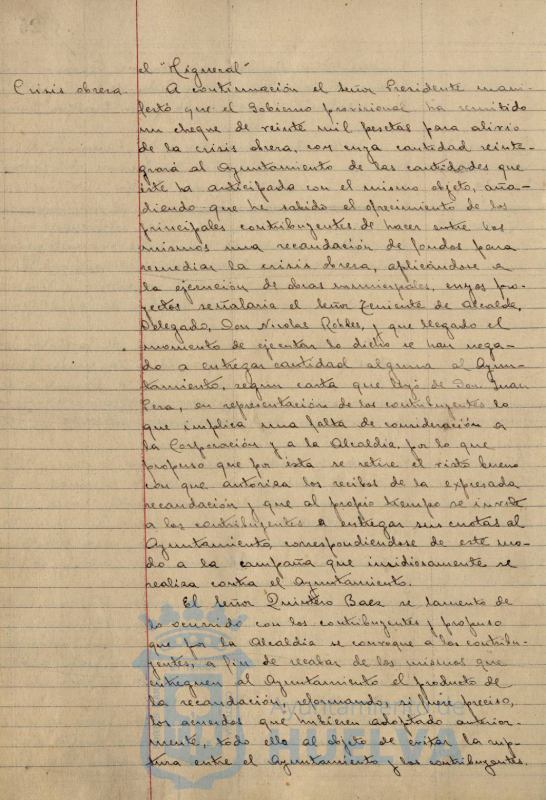 el "Higueral"
Crisis obrera.
A continuación el Señor Presidente mani-
festó que el Gobierno provisional ha remitido
un cheque de veinte mil pesetas para alivio
de la crisis obrera, con cuya cantidad reinte-
grará al Ayuntamiento de las cantidades que
éste ha anticipada con el mismo objeto, aña-
diendo que ha sabido el ofrecimiento de los
principales contribuyentes de hacer entre los
mismos una recaudación de fondos para
remediar la crisis obrera, aplicándose a
la ejecución de obras municipales, cuyos pro-
yectos señalaria el Señor Teniente de Alcalde,
Delegado, Don Nicolas Robles, y que llegado el
momento de ejecutar lo dicho se han nega-
do a entregar cantidad alguna al Ayun-
tamiento, según carta que leyó de Don Juan
en representación de los contribuyentes lo
que implica una falta de consideración a
la Corporación y a la Alcaldia, por lo que
propuso que por ésta se retire el visto bueno
con que autoriza los recibos de la expresada
recaudación y que al propio tiempo se invite
a los contribuyentes a entregar sus cuotas al
Ayuntamiento, correspondiendose de este mo-
do a la campaña que insidiosamente se
realiza contra el Ayuntamiento.
El Señor Quintero Baez se lamento de
lo ocurrido con los contribuyentes y propuso
que por la Alcaldia se convoque a los contribu-
yentes, a fin de recabar de los mismos que
entreguen al Ayuntamiento el producto de
la recaudación, reformando, si fuese preciso,
los acuerdos que hubieren adoptado anterior-
mente, todo ello al objeto de evitar la rup-
tura entre el Ayuntamiento y los contribuyentes.
Ayuntamiento de
HUELVA